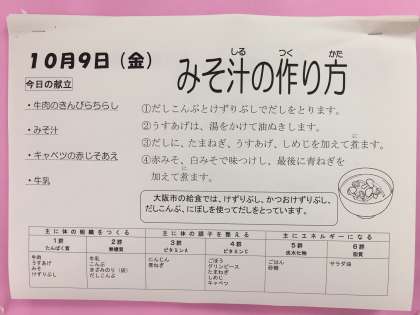 10月9日（金）
みそ汁の作り方
しる つく かた
今日の献立
・牛肉のきんぴらちらし
・みそ汁
・キャベツの赤じそあえ
・牛乳
①だしこんぶとけずりぶしでだしをとります。
②うすあげは、湯をかけて油ぬきします。
③だしに、たまねぎ、うすあげ、しめじを加えて煮ます。
に
④赤みそ、白みそで味つけし、最後に青ねぎを
加えて煮ます。
に
大阪市の給食では、けずりぶし、かつおけずりぶし、
だしこんぶ、にぼしを使ってだしをとっています。
主に体の組織をつくる 主に体の調子を整える 主にエネルギーになる
1群 2群 3群 4群 5群 6群
たんぱく質 無機質 ビタミンA ビタミンC 炭水化物 脂質
牛肉 牛乳 にんじん ごぼう ごはん サラダ油
うすあげ こんぶ 青ねぎ グリンピース 砂糖
みそ きざみのり たまねぎ
けずりぶし だしこんぶ しめじ
キャベツ